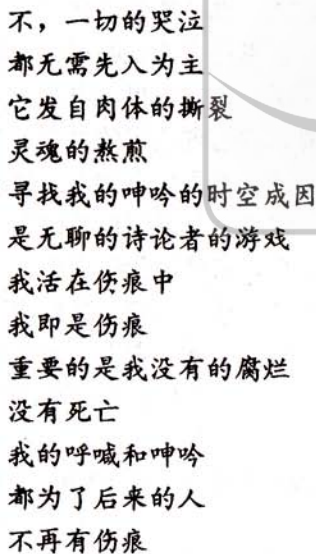 不，一切的哭泣
都无需先入为主
它发自肉体的撕裂
灵魂的熬煎
寻找我的呻吟的时空成因
是无聊的诗论者的游戏
我活在伤痕中
我即是伤痕
重要的是我没有的腐烂
没有死亡
我的呼喊和呻吟
都为了后来的人
不再有伤痕